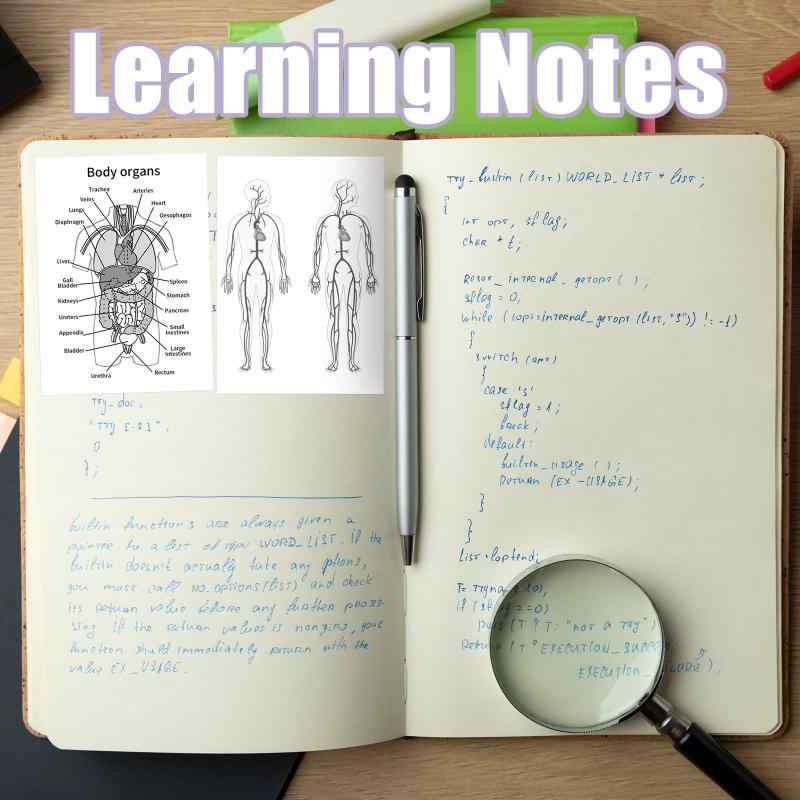 Learning Notes
Body organs
Trachea
Arteries
Veins
Heart
Lungs
Oesophagus
Diaphragm
Liver
Gall
Bladder
Spleen
Stomach
Kidneys
Pancreas
Ureters
Small
Inestines
Appendix
Large
Intestines
Bladder
Rectum
Urethra
TTY_doc,
"TTY [-s]",
0
};
builtin functions are always given a
pointer to a list of type WORD_LIST. If the
builtin doesn't actually take any options,
you must call no_options(list) and check
its return value before any further proces-
sing. If the return value is nonzero, your
function should immediately return with the
value EX_USAGE.
TTY_builtin (list) WORD_LIST * list;
{
int opt, sflag;
char * t;
Reset_internal_getopt ( );
sflag = 0;
while ((opt=internal_getopt (list,"s")) != -1)
{
switch (opt)
{
case 's'
sflag = 1;
break;
default:
builtin_usage ( );
return (EX_USAGE);
}
}
list = loptend;
if (sflag == 0)
puts (t ? t : "not a tty")
Return (t ? EXECUTION_SUCCE
EXECUTION_